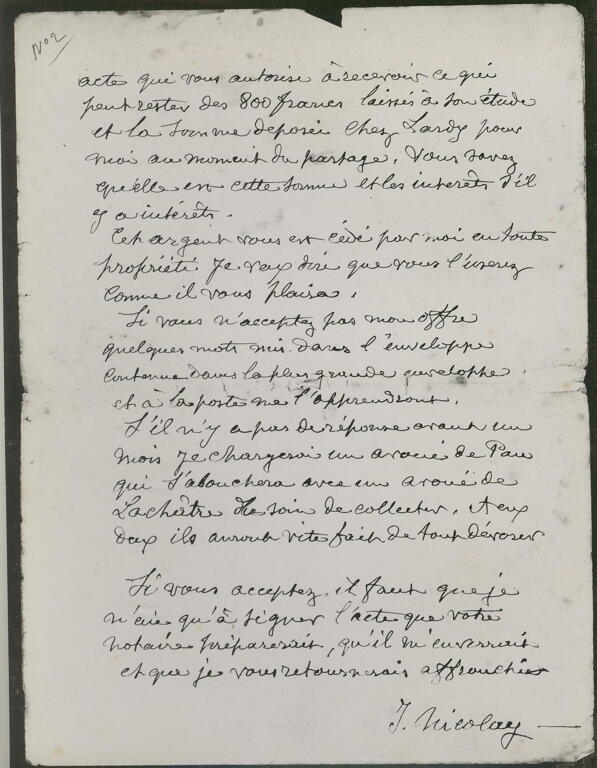 No 2
acte qui vous autorise à recevoir ce qui
peut rester des 800 francs laissés à son étude
et la somme deposée chez Lardy pour
moi au moment du partage. Vous savez
qu'elle est cette somme et les interêts s'il
y a intérêts.
Cet argent vous est cédé par moi en toute
propriété. Je veux dire que vous l'userez
comme il vous plaira.
Si vous n'acceptez pas mon offre
quelques mots mis dans l'enveloppe
contenue dans la plus grande enveloppe
et à la poste me l'apprendront.
S'il n'y a pas de réponse avant un
mois je chargerai un avoué de Pau
qui s'abouchera avec un avoué de
Lachâtre du soin de collecter. A eux
deux ils auront vite fait de tout dévorer
Si vous acceptez il faut que je
n'aie qu'à signer l'acte que votre
notaire préparerait, qu'il m'enverrait
et que je vous retournerais affranchie
J. Nicolay